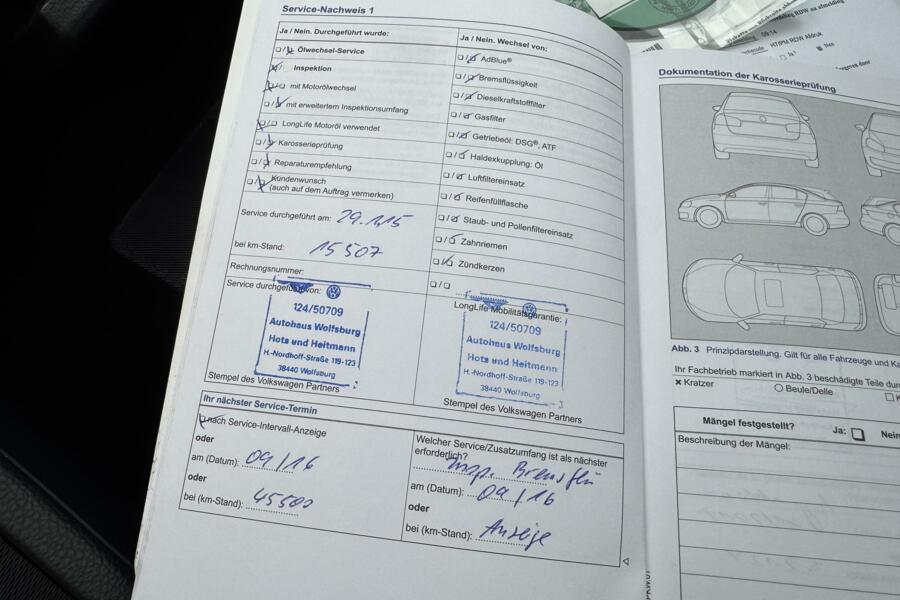 Service-Nachweis 1
Ja / Nein. Durchgeführt wurde:
Ölwechsel-Service
Inspektion
mit Motorölwechsel
mit erweitertem Inspektionsumfang
LongLife Motoröl verwendet
Karosserieprüfung
Reparaturempfehlung
Kundenwunsch
(auch auf dem Auftrag vermerken)
Service durchgeführt am: 29.1.15
bei km-Stand: 15 507
Rechnungsnummer:
Service durchgeführt von:
124/50709
Autohaus Wolfsburg
Hotz und Heitmann
H.-Nordhoff-Straße 119-123
38440 Wolfsburg
Stempel des Volkswagen Partners
Ja / Nein. Wechsel von:
AdBlue®
Bremsflüssigkeit
Dieselkraftstofffilter
Gasfilter
Getriebeöl: DSG®, ATF
Haldexkupplung: Öl
Luftfiltereinsatz
Reifenfüllflasche
Staub- und Pollenfiltereinsatz
Zahnriemen
Zündkerzen
LongLife Mobilitätsgarantie:
124/50709
Autohaus Wolfsburg
Hotz und Heitmann
H.-Nordhoff-Straße 119-123
38440 Wolfsburg
Stempel des Volkswagen Partners
Ihr nächster Service-Termin
nach Service-Intervall-Anzeige
oder
am (Datum): 09/16
oder
bei (km-Stand): 45500
Welcher Service/Zusatzumfang ist als nächster
erforderlich?
Insp. Bremsflü
am (Datum): 09/16
oder
bei (km-Stand): Anzeige
Dokumentation der Karosserieprüfung
Abb. 3 Prinzipdarstellung. Gilt für alle Fahrzeuge und
Ihr Fachbetrieb markiert in Abb. 3 beschädigte Teile
Kratzer
Beule/Delle
Mängel festgestellt?
Ja:
Beschreibung der Mängel:
09:14